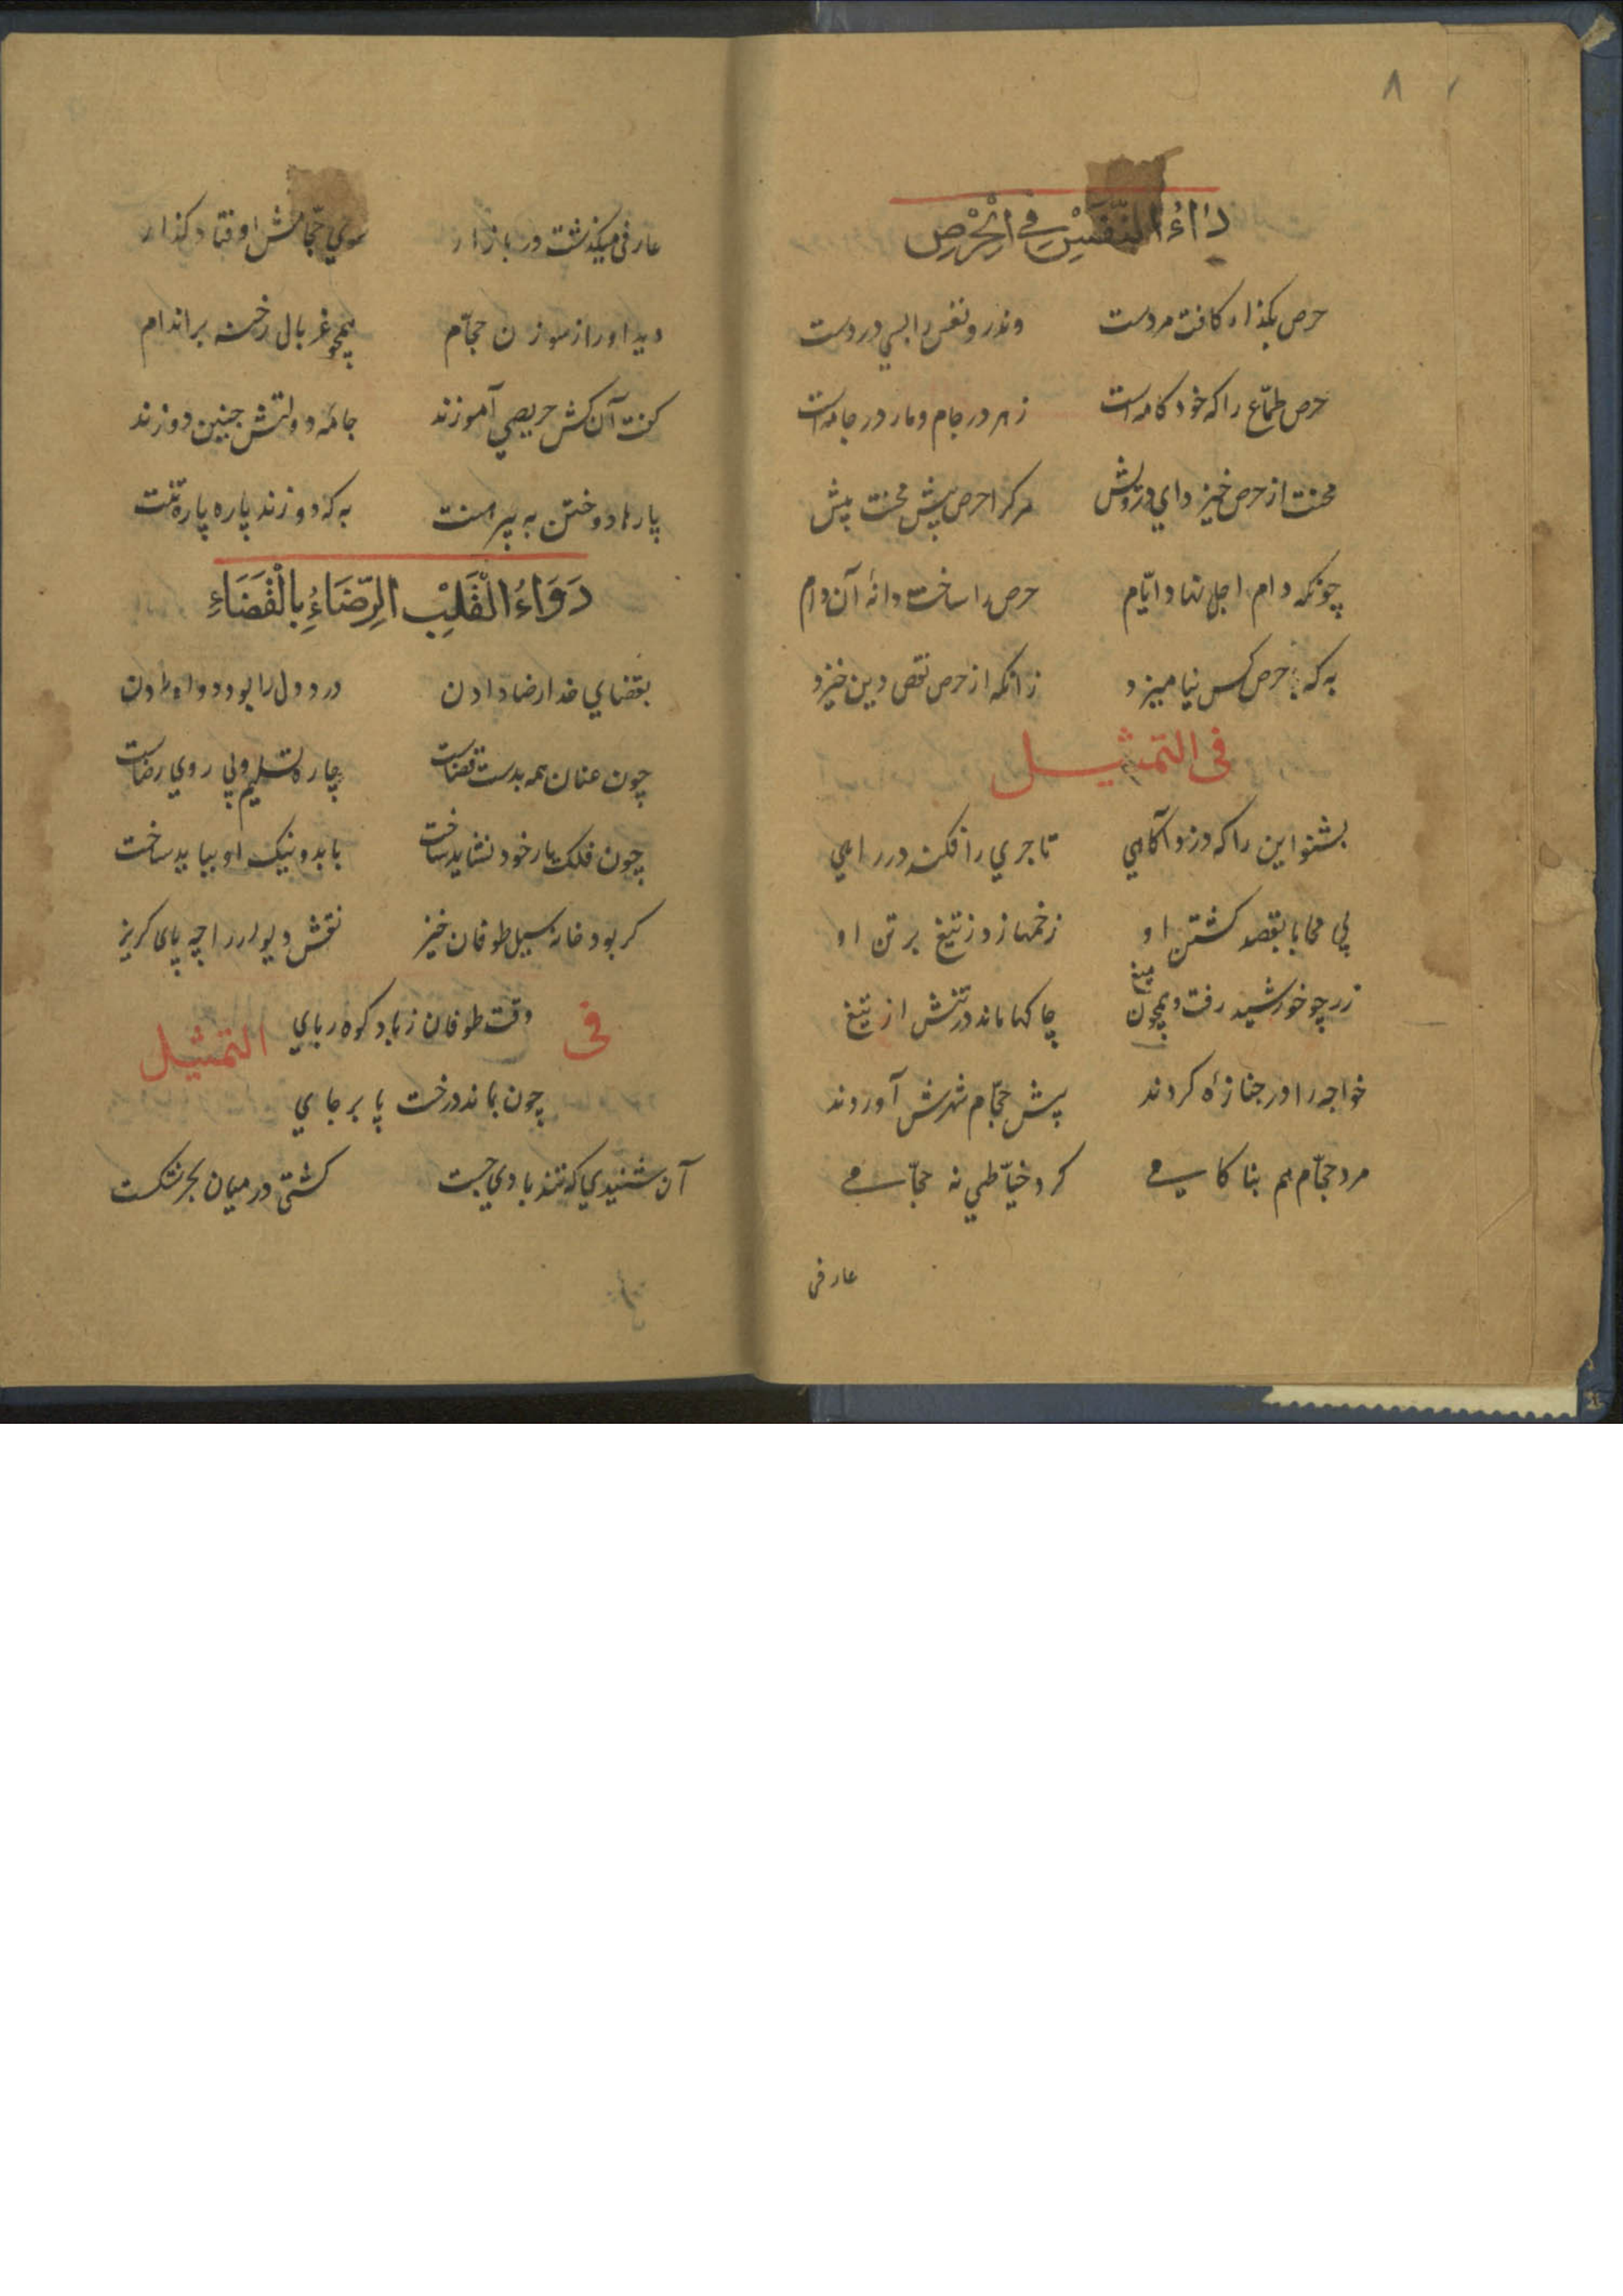 ۸
داءُ النَّفْسِ فِی الْحِرْصِ
حرص بگذار کافت مردست وندرو نفس را بسی دردست
حرص طمّاع را که خودکامه است زهر در جام و مار در جامه است
محنت از حرص خیزد ای درویش هرکرا حرص بیش محنت بیش
چونکه دام اجل نهاد ایّام حرص را ساخت دانهٔ آن دام
به که با حرص کس نیامیزد زانکه از حرص نقص دین خیزد
فی التمثیل
بشنو این را که دزد آگاهی تاجری را فکند در راهی
بی محابا بقصد کشتن او زخمها زد ز تیغ بر تن او
زر چو خورشید رفت و همچون میغ چاکها ماند در تنش از تیغ
خواجه را در جنازه کردند پیش حجّام شهرش آوردند
مرد حجّام هم بناکامی کرد خیّاطی نه حجّامی
عارفی
عارفی میگذشت در بازار سوی حجّامش اوفتاد گذار
دید او را ز سوزن حجّام همچو غربال رخنه بر اندام
گفت آن کش حریصی آموزند جامهٔ دولتش چنین دوزند
پارها دوختن به پیرهنت به که دوزند پاره پارهٔ تنت
دَوَاءُ الْقَلْبِ الرِّضَاءُ بِالْقَضَاءِ
بقضای خدا رضا دادن درد دل را بود دوا دادن
چون عنان همه بدست قضاست چاره تسلیم ولی روی رضاست
چون فلک یار خود نشاید ساخت با بد و نیک او بباید ساخت
گر بود خانه سیل طوفان خیز نقش دیوار را چه پای گریز
فی التمثیل
وقت طوفان ز باد کوه ربای
چون بماند درخت پا بر جای
آن شنیدی که تند بادی جست کشتی در میان بحر شکست